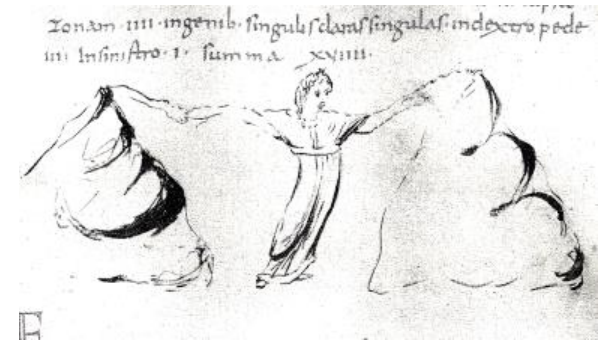 zonam · iiii · ingenib · singulis claras singulas · indextro pede
iii · Insinistro · i · summa xviiii ·
E